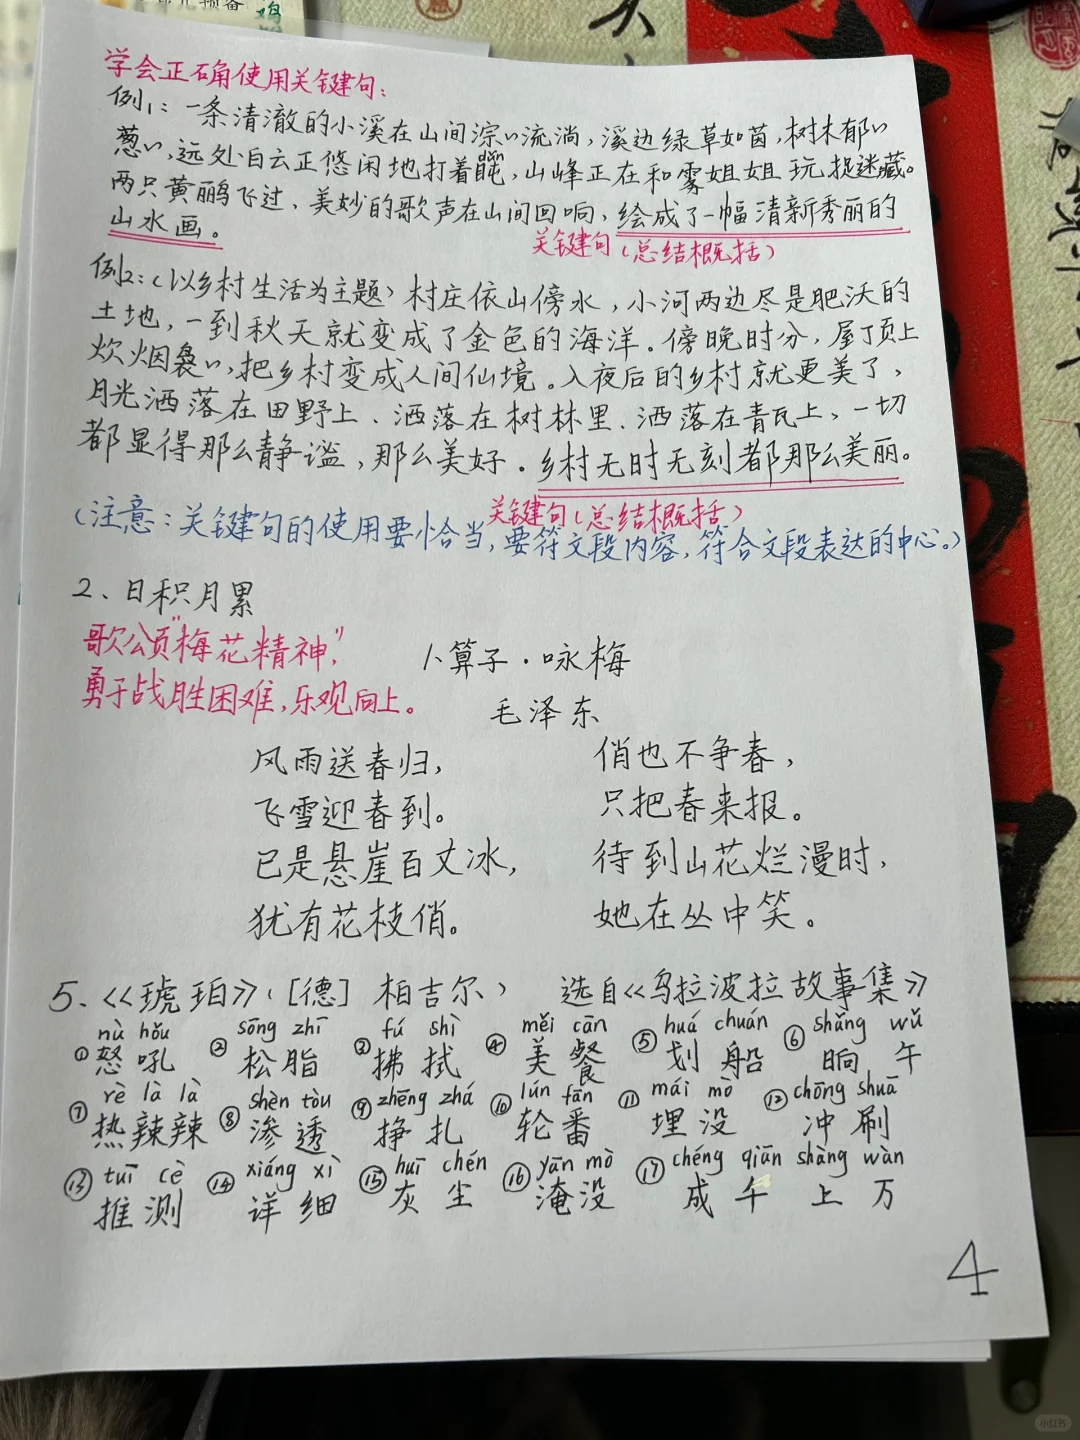 学会正确使用关键句：
例1：一条清澈的小溪在山间淙〃流淌，溪边绿草如茵，树木郁〃
葱〃，远处白云正悠闲地打着盹，山峰正在和雾姐姐玩捉迷藏。
两只黄鹂飞过、美妙的歌声在山间回响，绘成了一幅清新秀丽的
山水画。
关键句（总结概括）
例2：（以乡村生活为主题）村庄依山傍水，小河两边尽是肥沃的
土地，一到秋天就变成了金色的海洋。傍晚时分，屋顶上
炊烟袅〃，把乡村变成人间仙境。入夜后的乡村就更美了，
月光洒落在田野上、洒落在树林里、洒落在青瓦上，一切
都显得那么静谧，那么美好。乡村无时无刻都那么美丽。
关键句（总结概括）
（注意：关键句的使用要恰当，要符文段内容，符合文段表达的中心。）
2、日积月累
歌颂"梅花精神"，
勇于战胜困难，乐观向上。
卜算子·咏梅
毛泽东
风雨送春归，
飞雪迎春到。
已是悬崖百丈冰，
犹有花枝俏。
俏也不争春，
只把春来报。
待到山花烂漫时，
她在丛中笑。
5、《琥珀》（[德] 柏吉尔） 选自《乌拉波拉故事集》
nù hǒu sōng zhī fú shì měi cān huá chuán shǎng wǔ
①怒吼 ②松脂 ③拂拭 ④美餐 ⑤划船 ⑥晌午
rè là là shèn tòu zhēng zhá lún fān mái mò chōng shuā
⑦热辣辣 ⑧渗透 ⑨挣扎 ⑩轮番 ⑪埋没 ⑫冲刷
tuī cè xiáng xì huī chén yān mò chéng qiān shàng wàn
⑬推测 ⑭详细 ⑮灰尘 ⑯淹没 ⑰成千上万
4